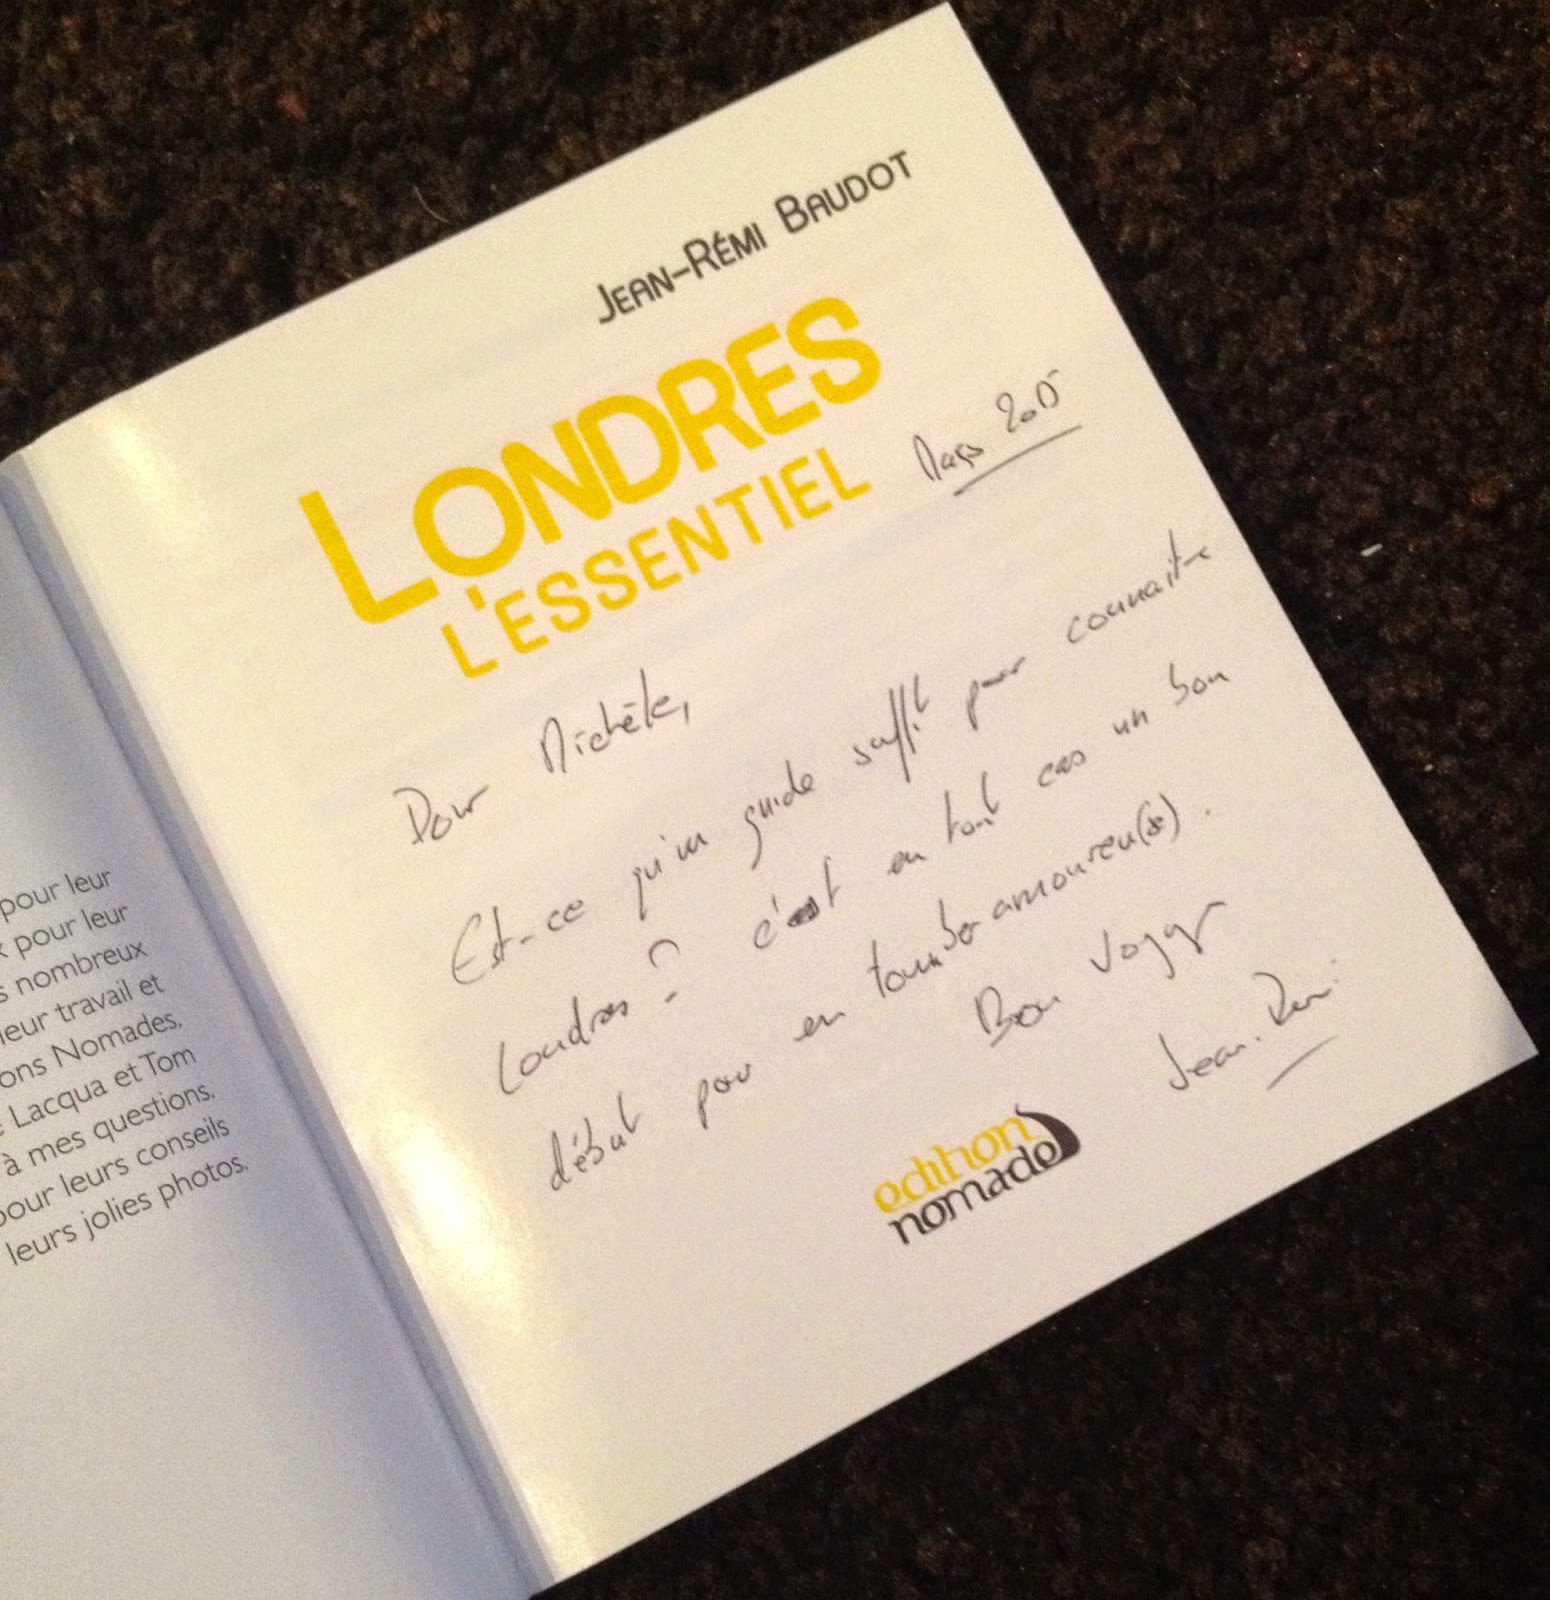 pour leur
x pour leur
s nombreux
leur travail et
ons Nomades.
e Lacqua et Tom
à mes questions.
pour leurs conseils
leurs jolies photos.
JEAN-RÉMI BAUDOT
LONDRES
L'ESSENTIEL
Mars 2015
Pour Michèle,
Est-ce qu'un guide suffit pour connaitre
Londres ? c'est en tout cas un bon
début pour en tomber amoureu(se).
Bon voyage
Jean-Rémi
edition
nomade